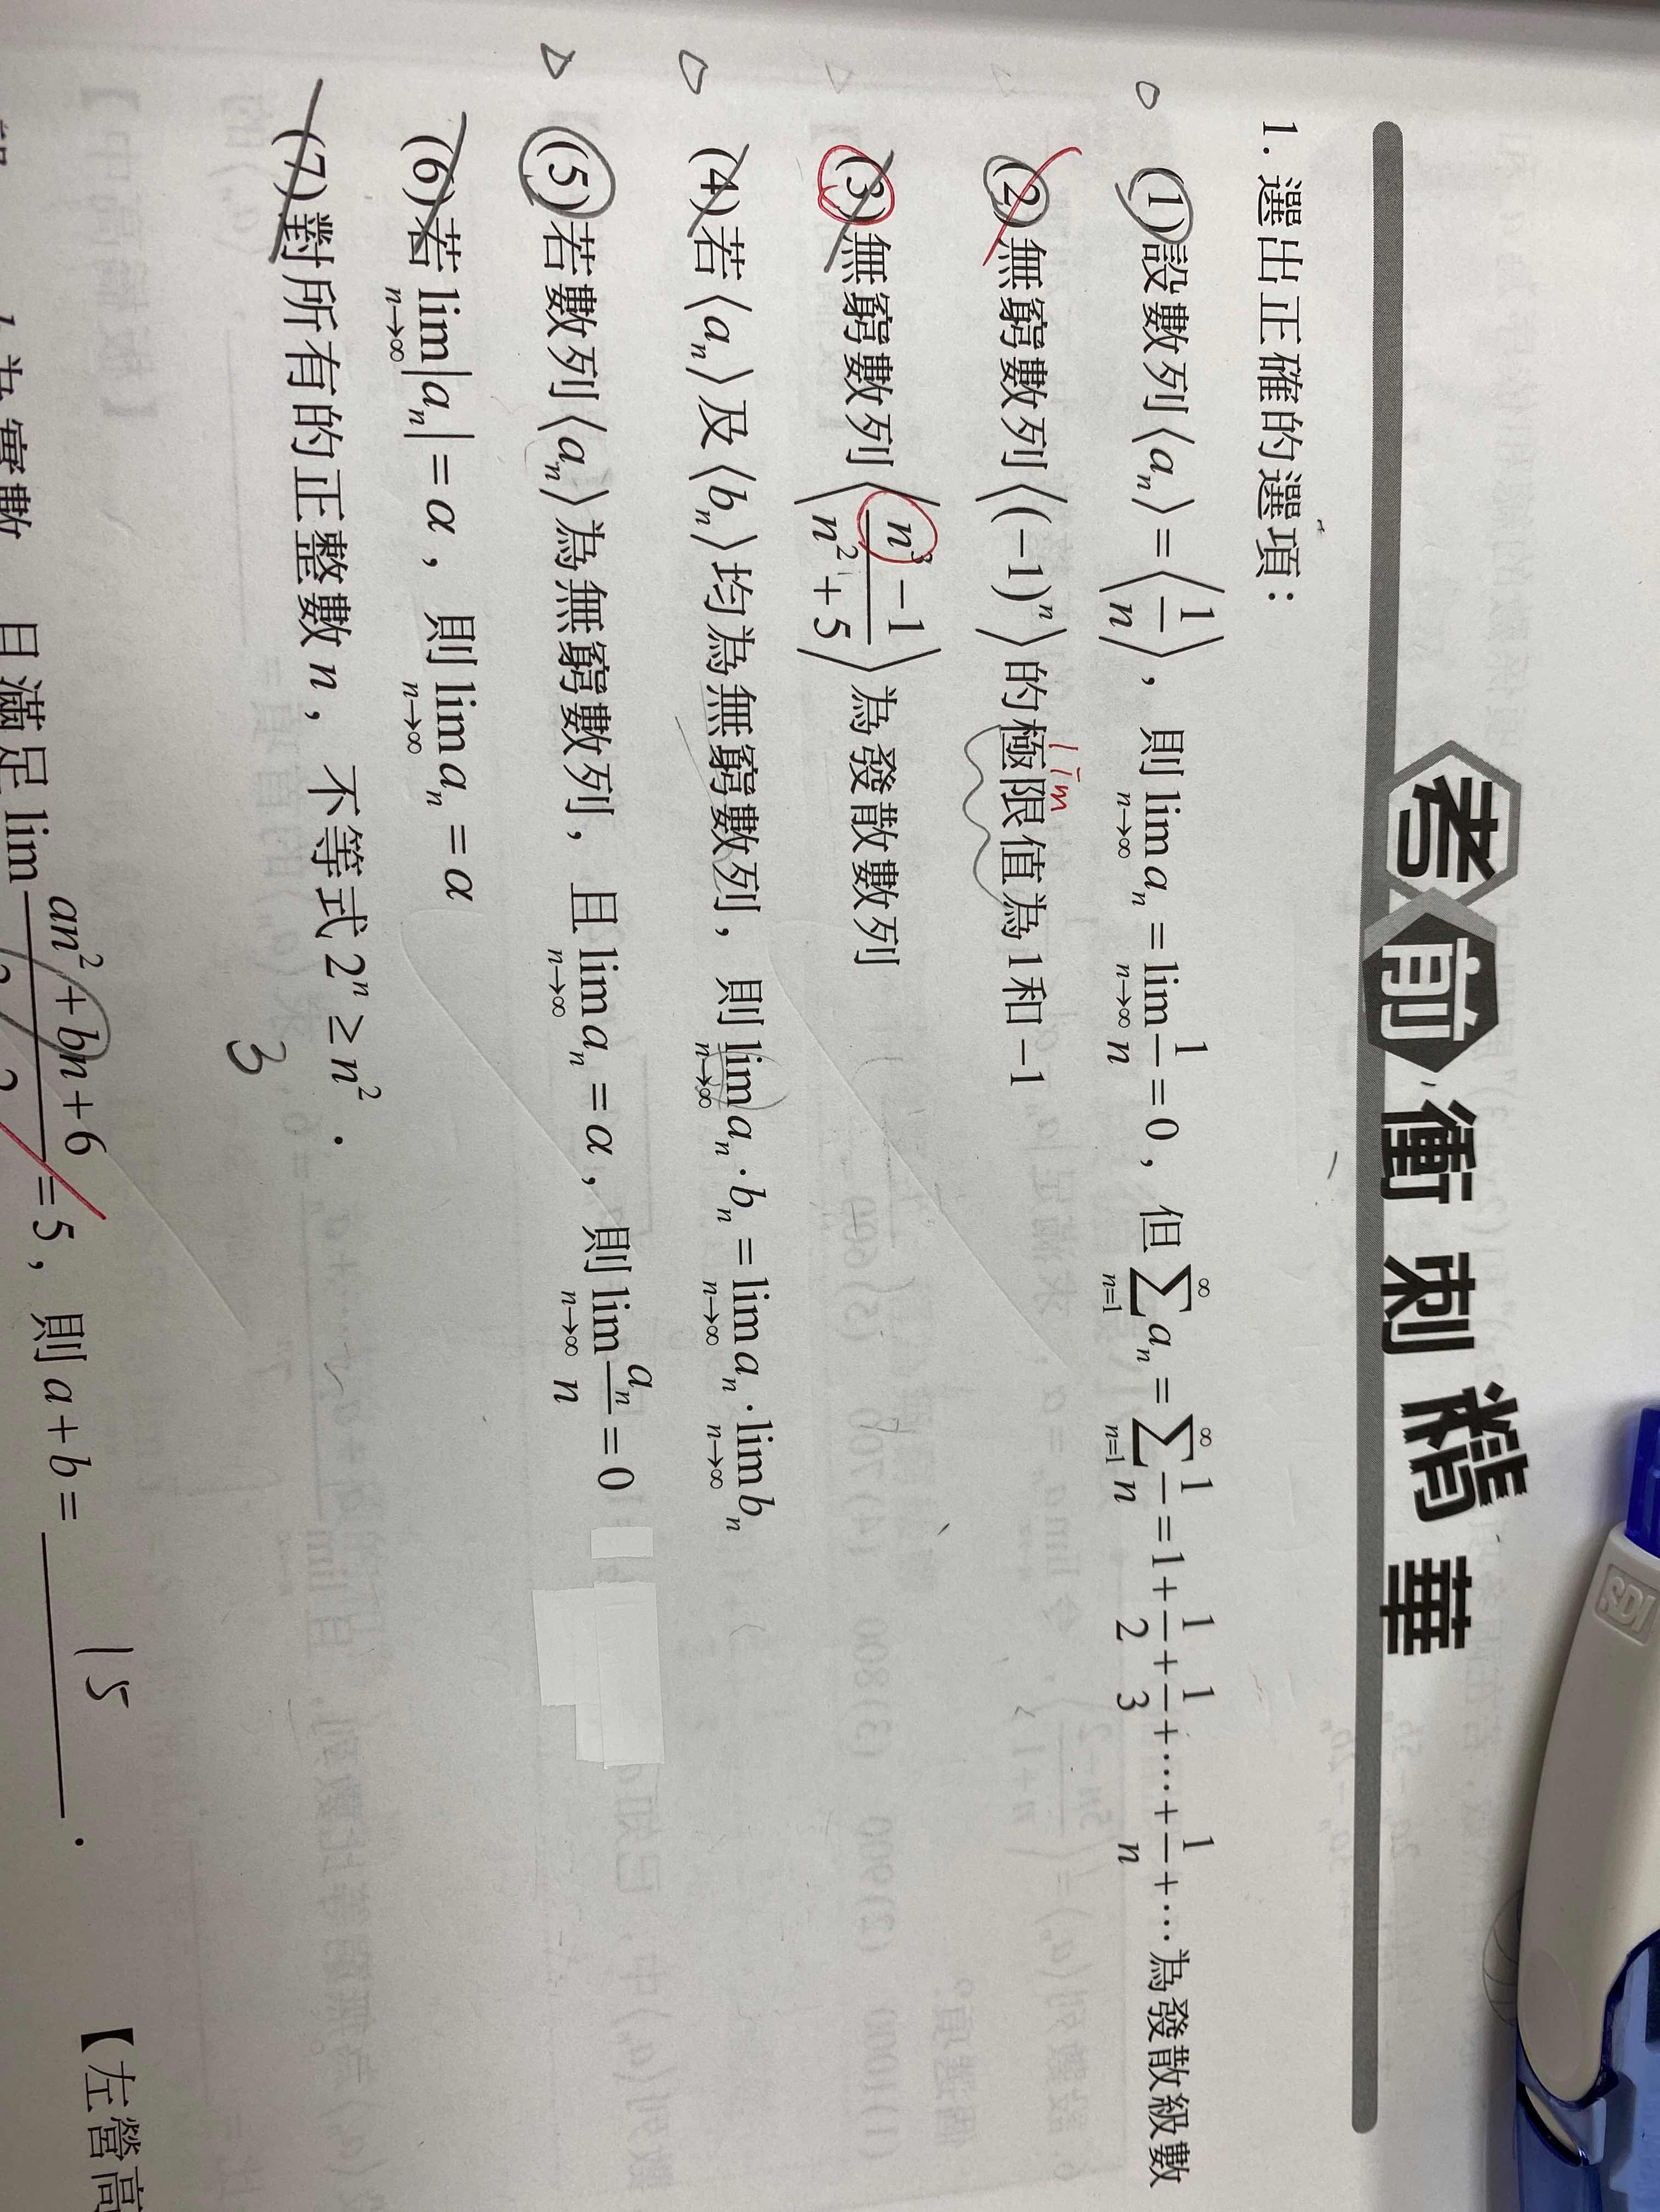 考前衝刺精華
1. 選出正確的選項：
(1)設數列⟨aₙ⟩=⟨1/n⟩，則 lim_{n→∞} aₙ = lim_{n→∞} 1/n = 0，但 ∑_{n=1}^{∞} aₙ = ∑_{n=1}^{∞} 1/n = 1 + 1/2 + 1/3 + … + 1/n + … 為發散級數
lim
(2)無窮數列⟨(−1)ⁿ⟩的極限值為1和−1
(3)無窮數列⟨(n³−1)/(n²+5)⟩為發散數列
(4)若⟨aₙ⟩及⟨bₙ⟩均為無窮數列，則 lim_{n→∞} aₙ·bₙ = lim_{n→∞} aₙ · lim_{n→∞} bₙ
(5)若數列⟨aₙ⟩為無窮數列，且 lim_{n→∞} aₙ = α，則 lim_{n→∞} aₙ/n = 0
(6)若 lim_{n→∞} |aₙ| = α，則 lim_{n→∞} aₙ = α
(7)對所有的正整數n，不等式 2ⁿ ≥ n²．
3
為實數 且滿足 lim (an²+bn+6)/ = 5，則 a+b = 15 ．
【左營高